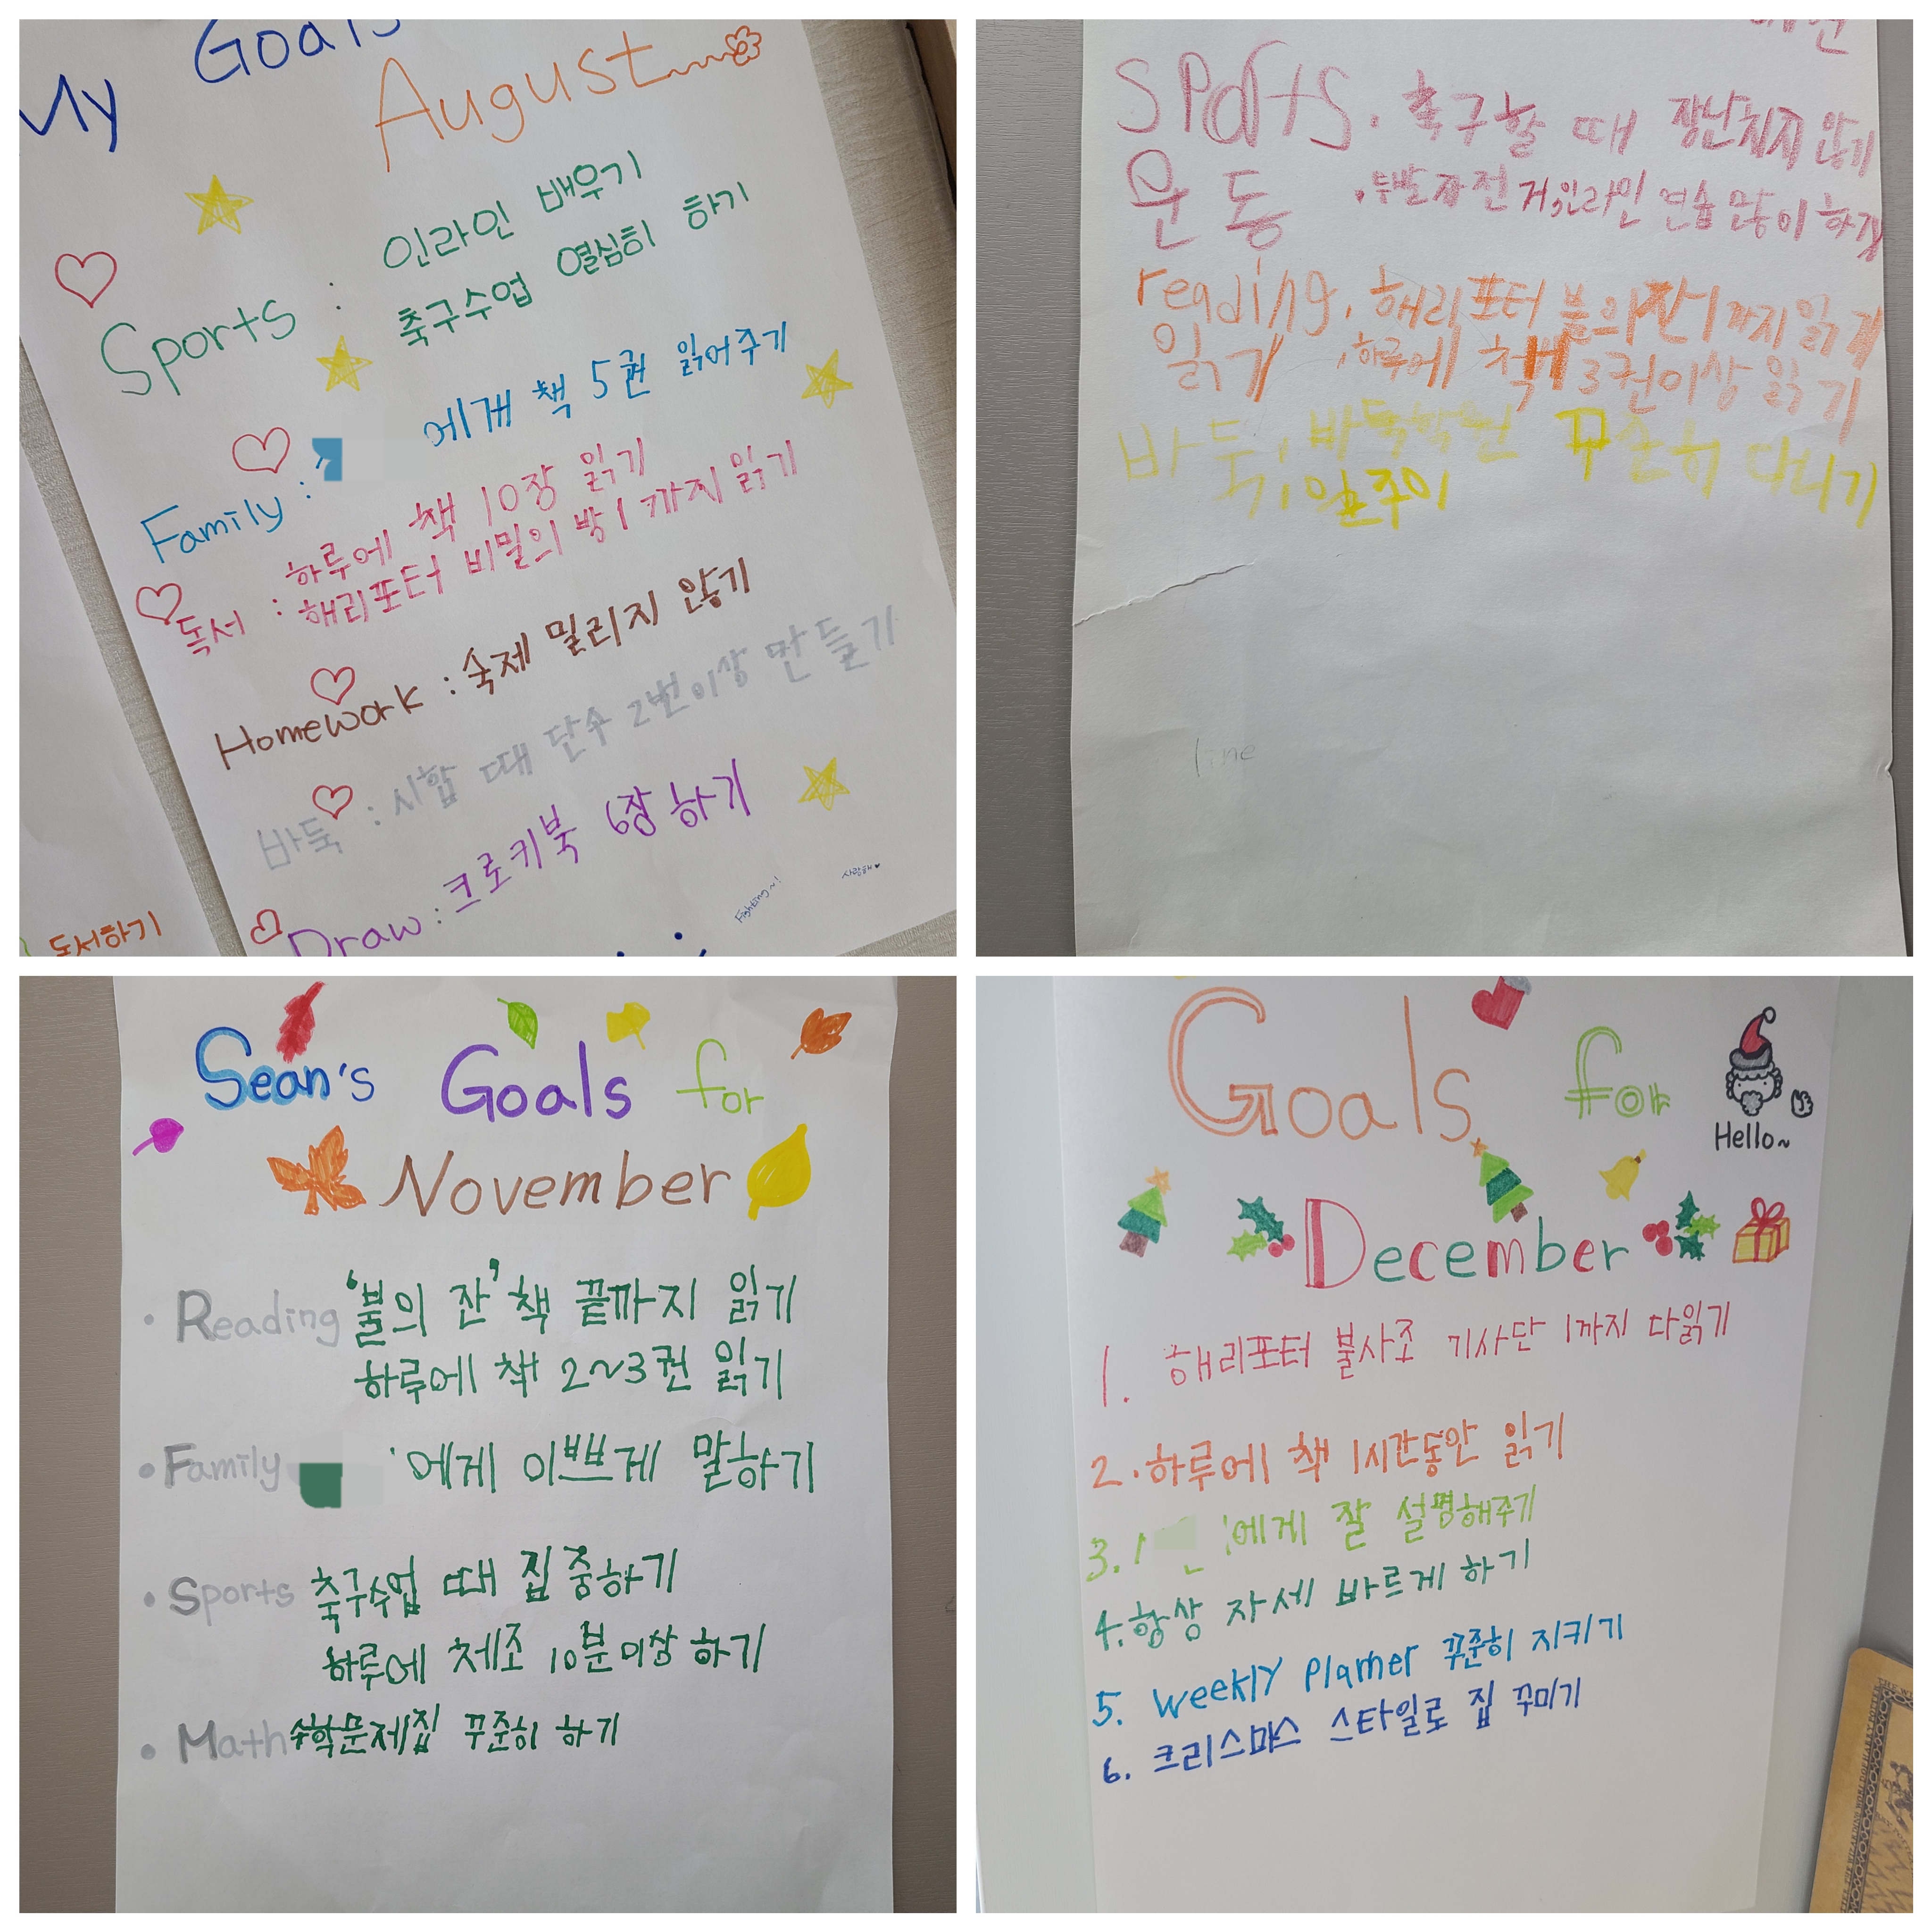 My Goals
August
Sports : 인라인 배우기
축구수업 열심히 하기
Family : 에개 책 5권 읽어주기
독서 : 하루에 책 10장 읽기
해리포터 비밀의 방 1까지 읽기
Homework : 숙제 밀리지 않기
바둑 : 시합 때 단수 2번이상 만들기
Draw : 크로키북 6장 하기
Fighting~!
사랑해♥
독서하기
sports. 축구할 때 장난치지 않기
운동 . 두발자전거,인라인 연습 많이 하기
reading. 해리포터 불의잔1까지읽기
읽기 , 하루에 책 3권이상 읽기
바둑, 바둑학원 꾸준히 다니기
line
Sean's Goals for
November
• Reading '불의 잔' 책 끝까지 읽기
하루에 책 2~3권 읽기
• Family 에게 이쁘게 말하기
• Sports 축구수업 때 집중하기
하루에 체조 10분이상 하기
• Math 수학문제집 꾸준히 하기
Goals for
Hello~
December
1. 해리포터 불사조 기사단 1까지 다읽기
2. 하루에 책 1시간동안 읽기
3. 에게 잘 설명해주기
4. 항상 자세 바르게 하기
5. Weekly Planner 꾸준히 지키기
6. 크리스마스 스타일로 집 꾸미기